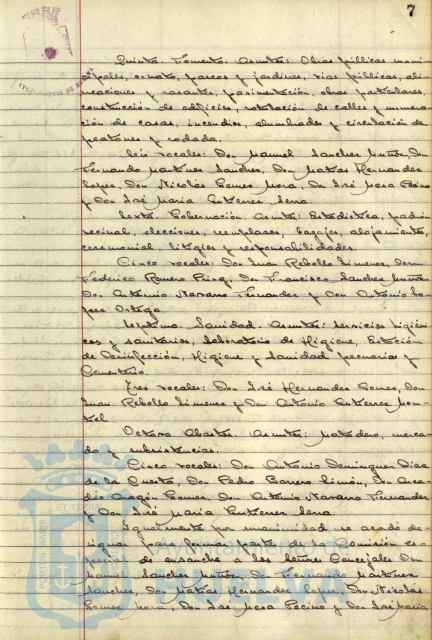 7
Quinta. Fomento. Asuntos: Obras públicas muni-
cipales, ornato, paseos y jardines, vias públicas, ali-
neaciones y rasantes, pavimentación, obras particulares,
construcción de edificios, rotulación de calles y numera-
ción de casas, incendios, alumbrados y circulación de
peatones y rodada.
Seis vocales: Don Manuel Sanchez Muñoz, Don
Fernando Martinez Sanchez, Don Matias Hernandez
Lopez, Don Nicolas Gomez Mora, Don José Mesa Pecino
y Don José Maria Gutierrez Sera.
Sexta. Gobernación. Asuntos: Estadistica, padrón
vecinal, elecciones, reemplazos, bagajes, alojamientos,
ceremonial, litigios y responsabilidades.
Cinco vocales: Don Juan Rebollo Jimenez, Don
Federico Romero Don Francisco Sanchez Muñoz
Don Antonio Navarro Fernandez y Don Antonio Lo-
pez Ortega.
Septima. Sanidad. Asuntos: Servicios higieni-
cos y sanitarios, laboratorio de Higiene, Estación
de Desinfección, Higiene y Sanidad pecuarias y
Cementerio.
Tres vocales: Don José Hernandez Gomez, Don
Juan Rebollo Jimenez y Don Antonio Gutierrez Mon-
tiel
Octava. Abastos. Asuntos: Matadero, merca-
do y subsistencias.
Cinco vocales: Don Antonio Dominguez Diaz
de la Cuesta, Don Pedro Borrero Limón, Don Arca-
dio Aragón Gomez, Don Antonio Navarro Fernandez
y Don José Maria Gutierrez Sera
Igualmente por unanimidad se acordó de-
signar para formar parte de la Comisión es-
pecial de ensanche a los señores Concejales Don
Manuel Sanchez Muñoz, Don Fernando Martinez
Sanchez, Don Matias Hernandez Lopez, Don Nicolas
Gomez Mora, Don José Mesa Pecino y Don José Maria